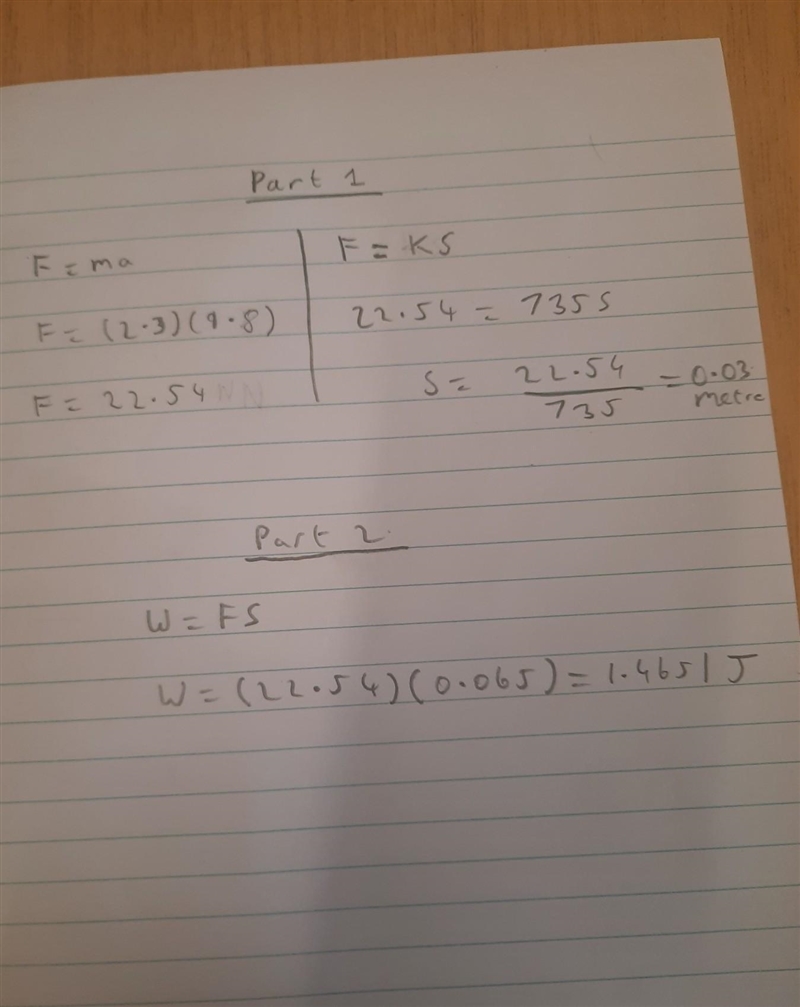 Part 1
F = ma
F = (2.3)(9.8)
F = 22.54
F = KS
22.54 = 735S
S = 22.54 / 735 = 0.03 metre
Part 2
W = FS
W = (22.54)(0.065) = 1.4651 J